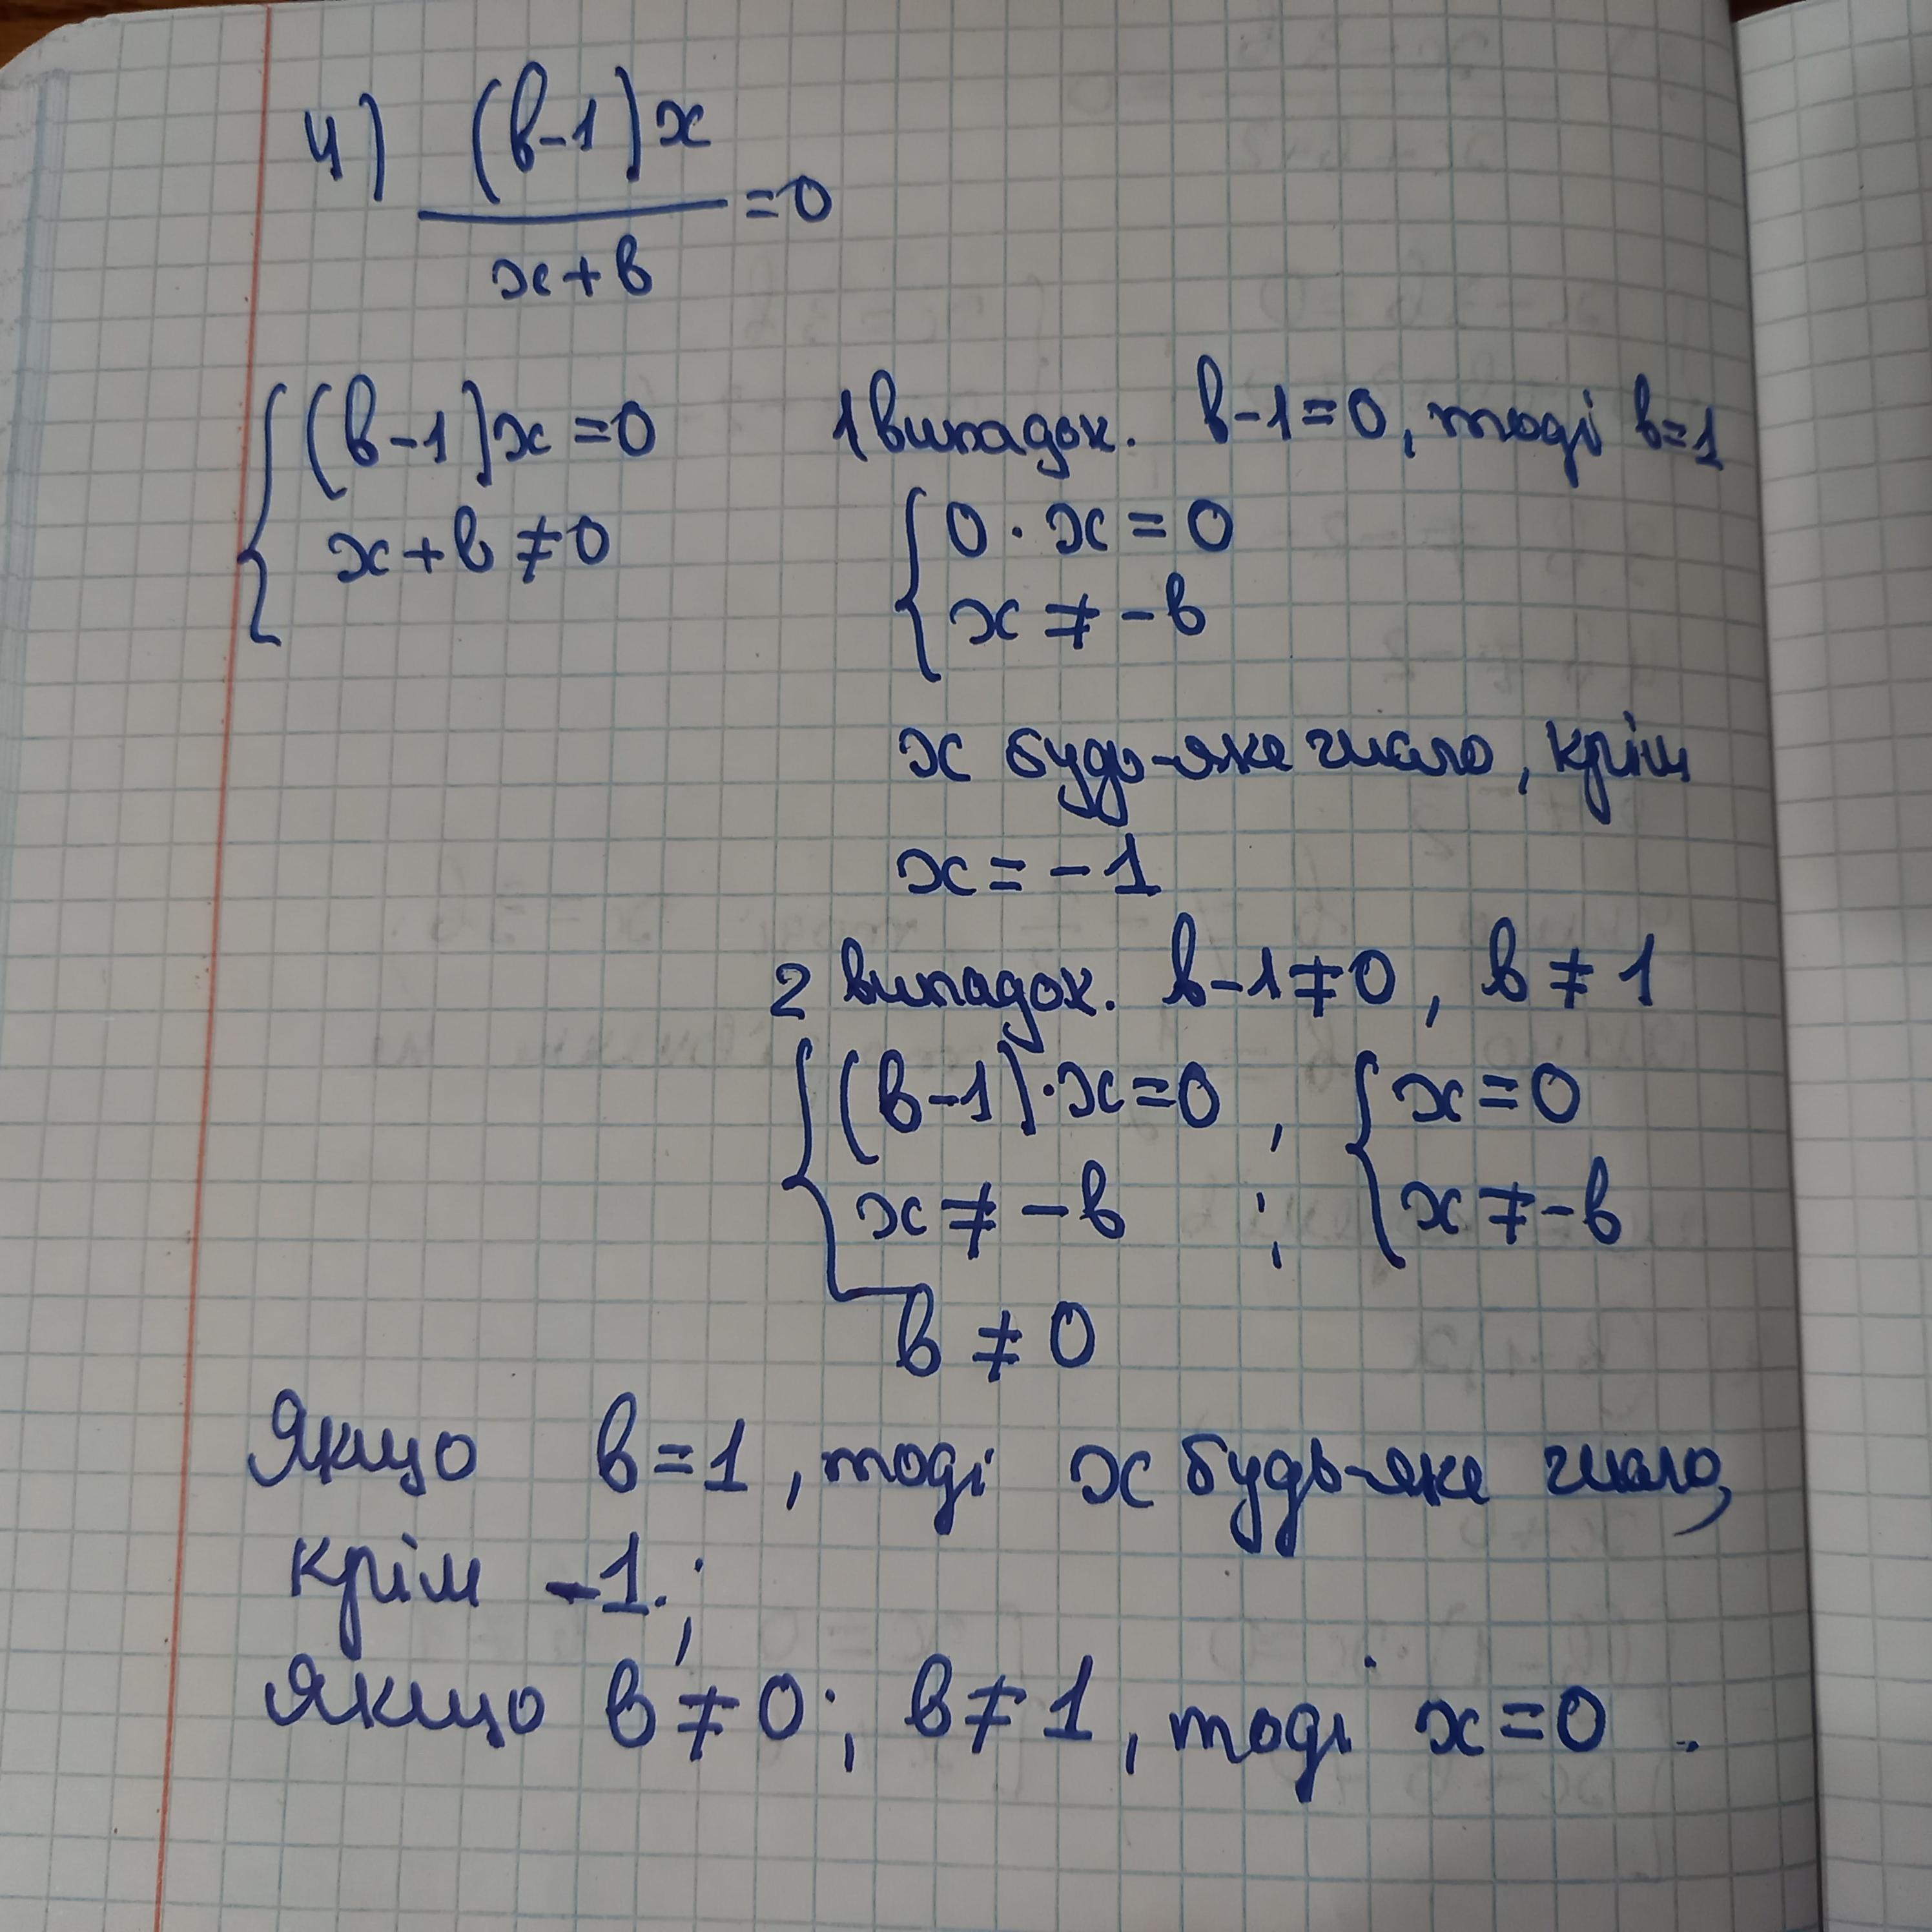 4) (в-1)x
=0
x+в
(в-1)x=0
x+в≠0
1 випадок. в-1=0, тоді в=1
0·x=0
x≠-в
x будь-яке число, крім
x=-1
2 випадок. в-1≠0, в≠1
(в-1)·x=0, x=0
x≠-в; x≠-в
в≠0
Якщо в=1, тоді x будь-яке число,
крім -1.;
Якщо в≠0; в≠1, тоді x=0.